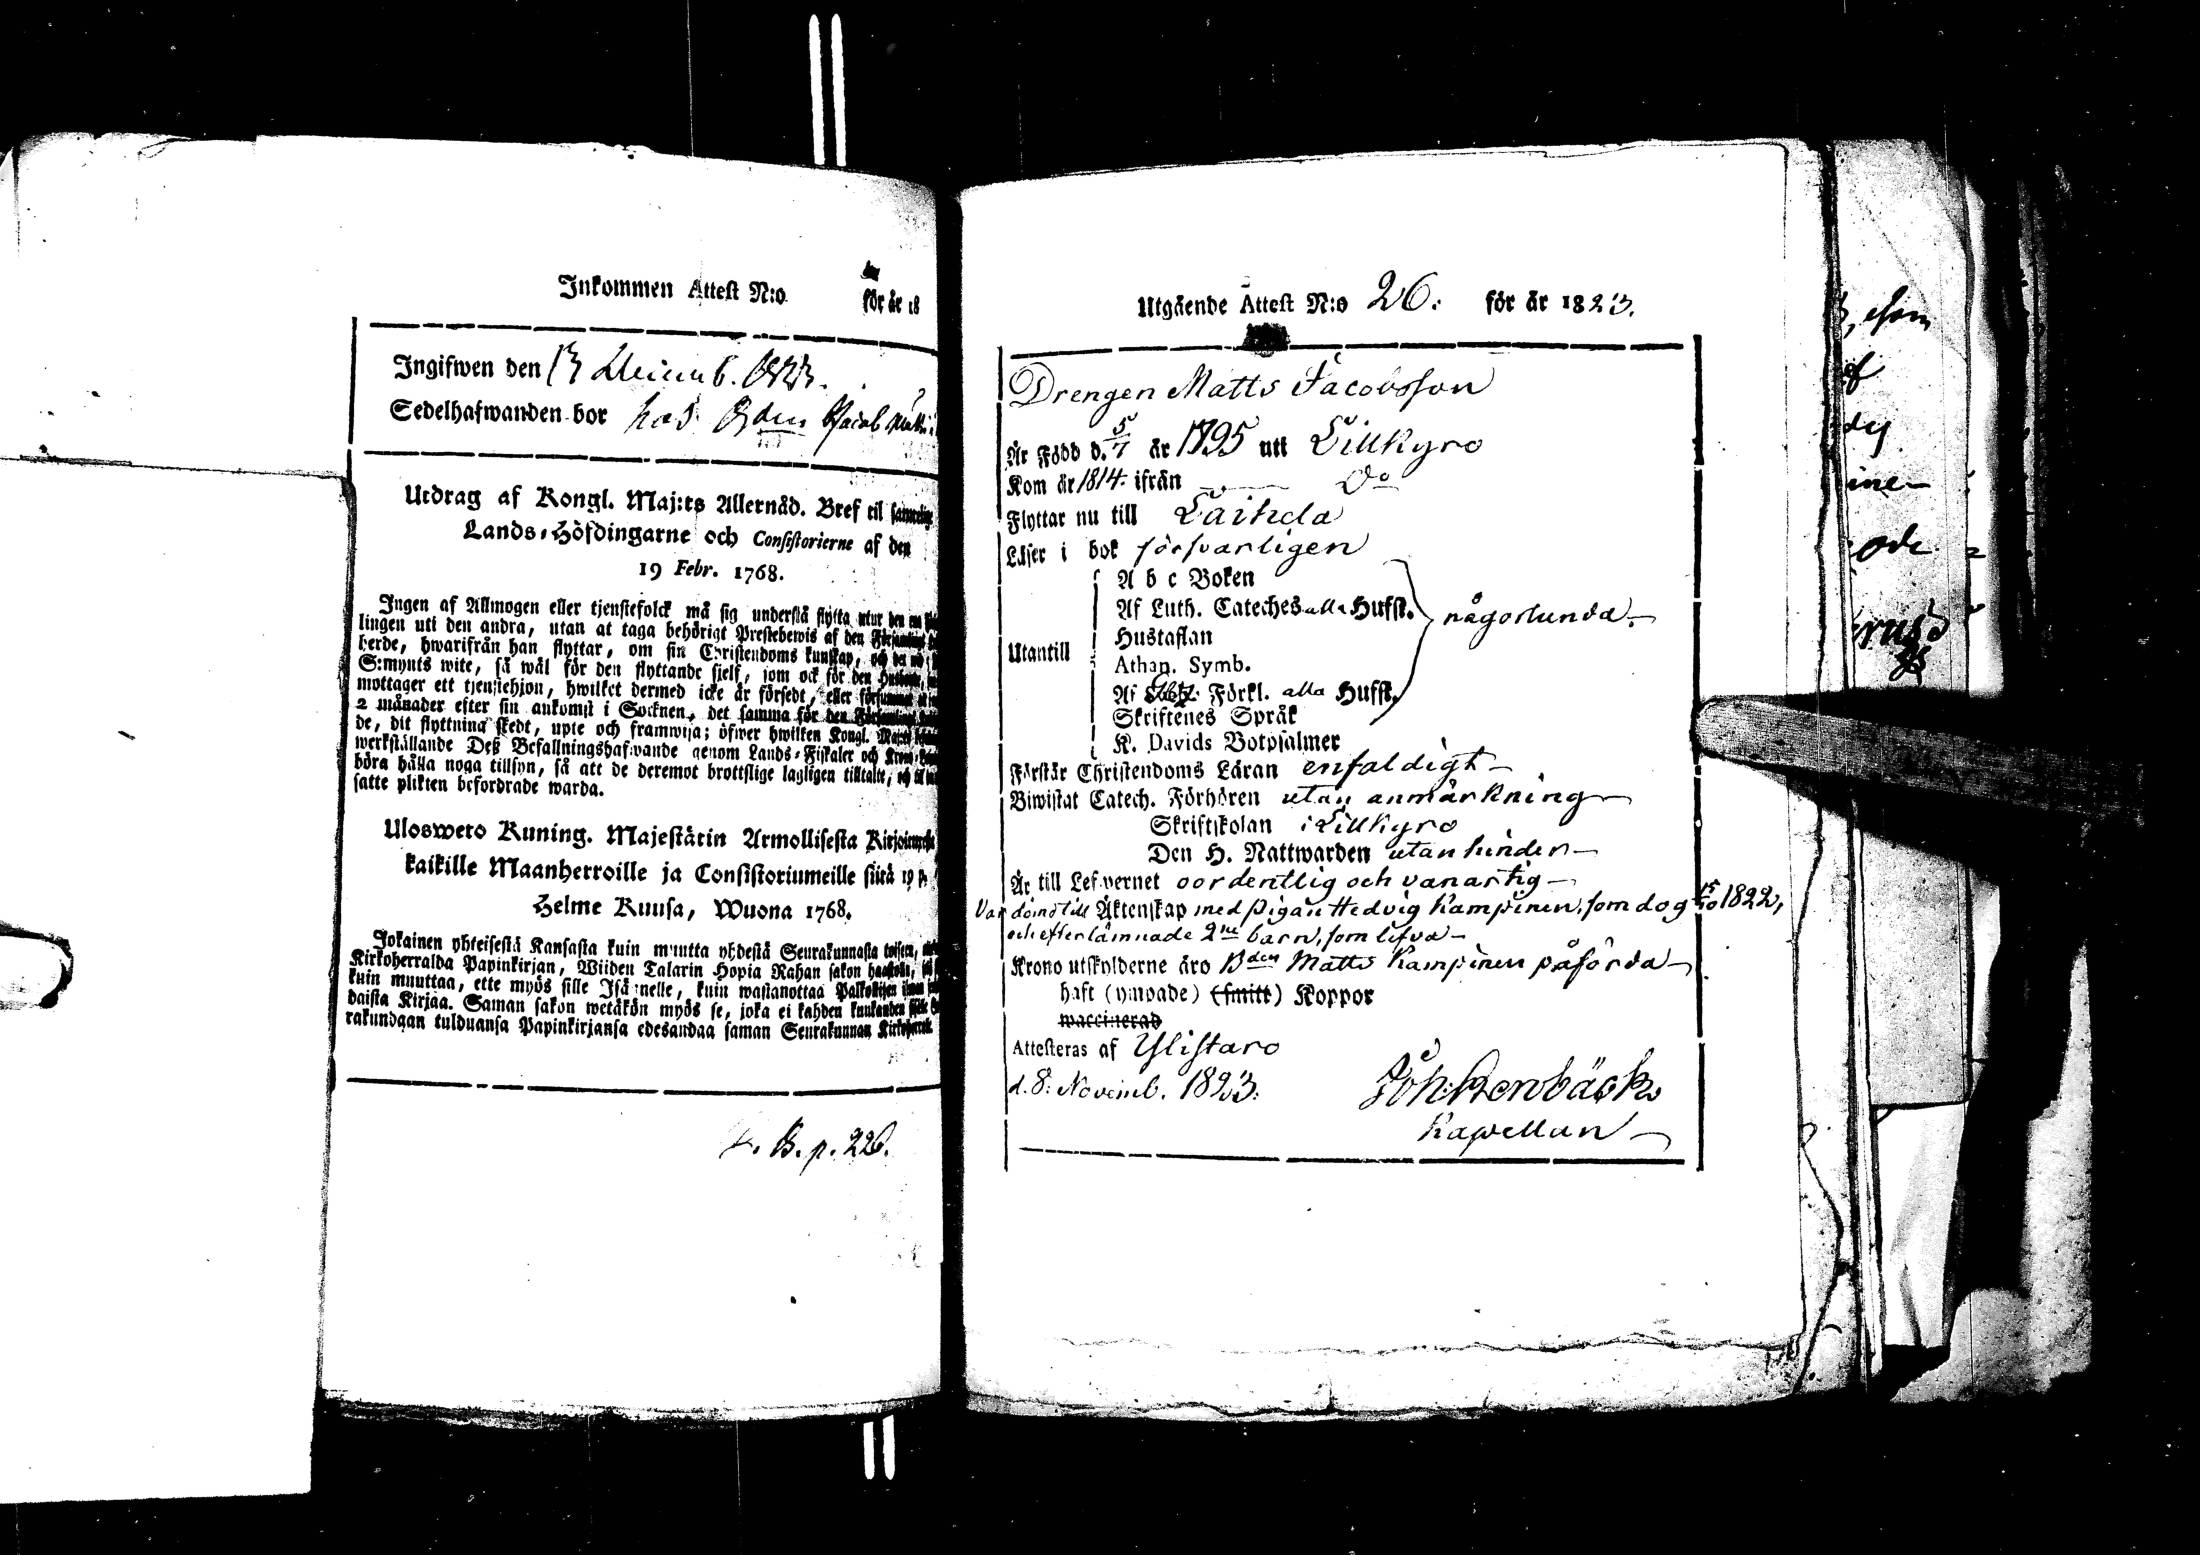 Inkommen Attest N:o för år 18
Ingifwen den 13 Decemb. 1823.
Sedelhafwanden bor hos Bden Jacob
Utdrag af Kongl. Maj:ts Allernåd. Bref til samtelige
Lands-Höfdingarne och Consistorierne af den
19 Febr. 1768.
Ingen af Allmogen eller tjenstefolck må sig understå flytta utur den ena
lingen uti den andra, utan at taga behörigt Prestebewis af den
herde, hwarifrån han flyttar, om sin Christendoms kunskap, och det wid
S:mynts wite, så wäl för den flyttande sielf, som ock för den
mottager ett tjenstehjon, hwilket dermed icke är försedt, eller försummat
2 månader efter sin ankomst i Socknen, det samma för den
de, dit flyttning skedt, upte och framwisa; öfwer hwilken Kongl. Maj:ts
werkställande Deß Befallningshafwande genom Lands-Fiskaler och
böra hålla noga tillsyn, så att de deremot brottslige lagligen tilltalte, och til
satte plikten befordrade warda.
Ulosweto Kuning. Majestätin Armollisesta
kaikille Maanherroille ja Consistoriumeille siitä 19 p.
Helme Kuusa, Wuona 1768.
Jokainen yhteisestä Kansasta kuin muutta yhdestä Seurakunnasta toiseen,
Kirkoherralda Papinkirjan, Wiiden Talarin Hopia Rahan sakon haastolla,
kuin muuttaa, ette myös sille Isännelle, kuin wastanottaa Palkollisen ilman
daista Kirjaa. Saman sakon wetäkön myös se, joka ei kahden kuukauden
rakundaan tulduansa Papinkirjansa edesandaa saman Seurakunnan
B. p. 226.
Utgående Attest N:o 26. för år 1823.
Drengen Matts Jacobsson
Är Född d. 5/7 år 1795 uti Lillkyro
Kom år 1814. ifrån Do
Flyttar nu till Laihela
Läser i bok försvarligen
A b c Boken
Af Luth. Cateches alla Hufst. någorlunda
Hustaflan
Utantill
Athan. Symb.
Af Förkl. alla Hufst.
Skriftenes Språk
K. Davids Botpsalmer
Förstår Christendoms Läran enfaldigt
Biwistat Catech. Förhören utan anmärkning
Skriftskolan i Lillkyro
Den H. Nattwarden utan hinder
Är till Lefvernet oordentlig och vanartig
Var dömd till Äktenskap med pigan Hedvig Kampinen, som dog 15/10 1822,
och efterlämnade 2ne barn, som lefva
Krono utskylderne äro Bden Matts Kampinen påförda
haft (ympade) (smitt) Koppor
waccinerad
Attesteras af Ylistaro
d. 8: Novemb. 1823.
Kapellan